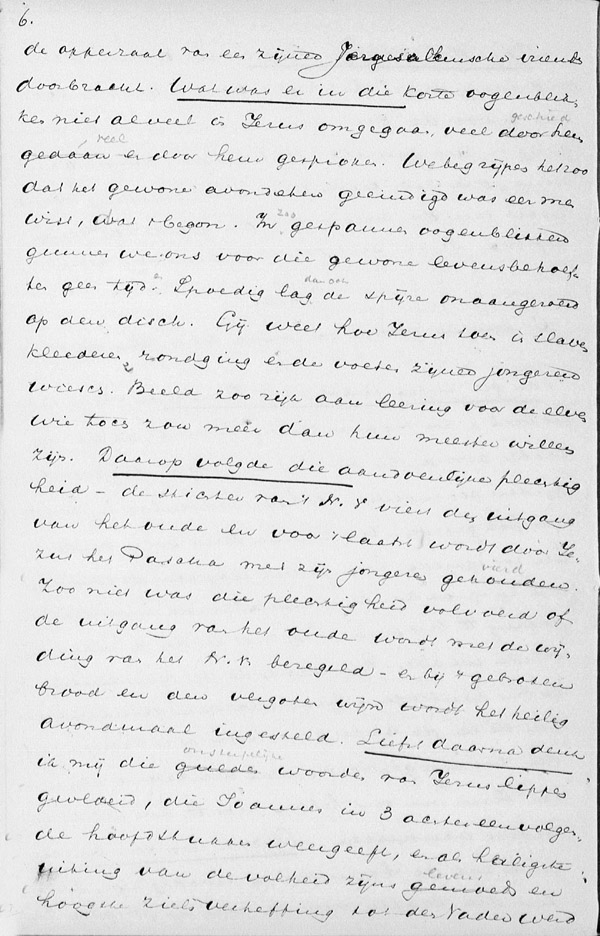 6.
de opperzaal van een zijner Jerusalemsche vrienden
doorbracht. Wat was er in die korte oogenblik-
ken niet al veel in Jezus omgegaan, veel door hem geschied
gedaan en veel door hem gesproken. We begrijpen het zoo
dat het gewone avondeten geeindigd was eer men
wist, dat 't begon. In zoo gespannen oogenblikken
gunnen we ons voor die gewone levensbehoef-
ten geen tijd en Spoedig lag dan ook de spijze onaangeroerd
op den disch. Gij weet hoe Jezus toen in slaven
kleederen rondging en de voeten zijner jongeren
wiesch. Beeld zoo rijk aan leering voor de elven
wie toch zou meer dan hun meester willen
zijn. Daarop volgde die aandoenlijke plechtig
heid - de stichter van 't N. V viert den uitgang
van het oude en voor 't laatst wordt door Je-
zus het Pascha met zijn jongeren gehouden. vierd
Zoo niet was die plechtigheid volvoerd of
de uitgang van het oude wordt met de wij-
ding van het N. V. bezegeld - en bij 't gebroken
brood en den vergoten wijn wordt het heilig
avondmaal ingesteld. Liefst daarna denk
ik mij die onsterfelijke woorden van Jezus lippen
gevloeid, die Joannes in 3 achtereenvolgen-
de hoofdstukken weergeeft, en als heiligste
uiting van de volheid zijns gemoeds levens en
hoogste zielsverheffing tot den Vader werd